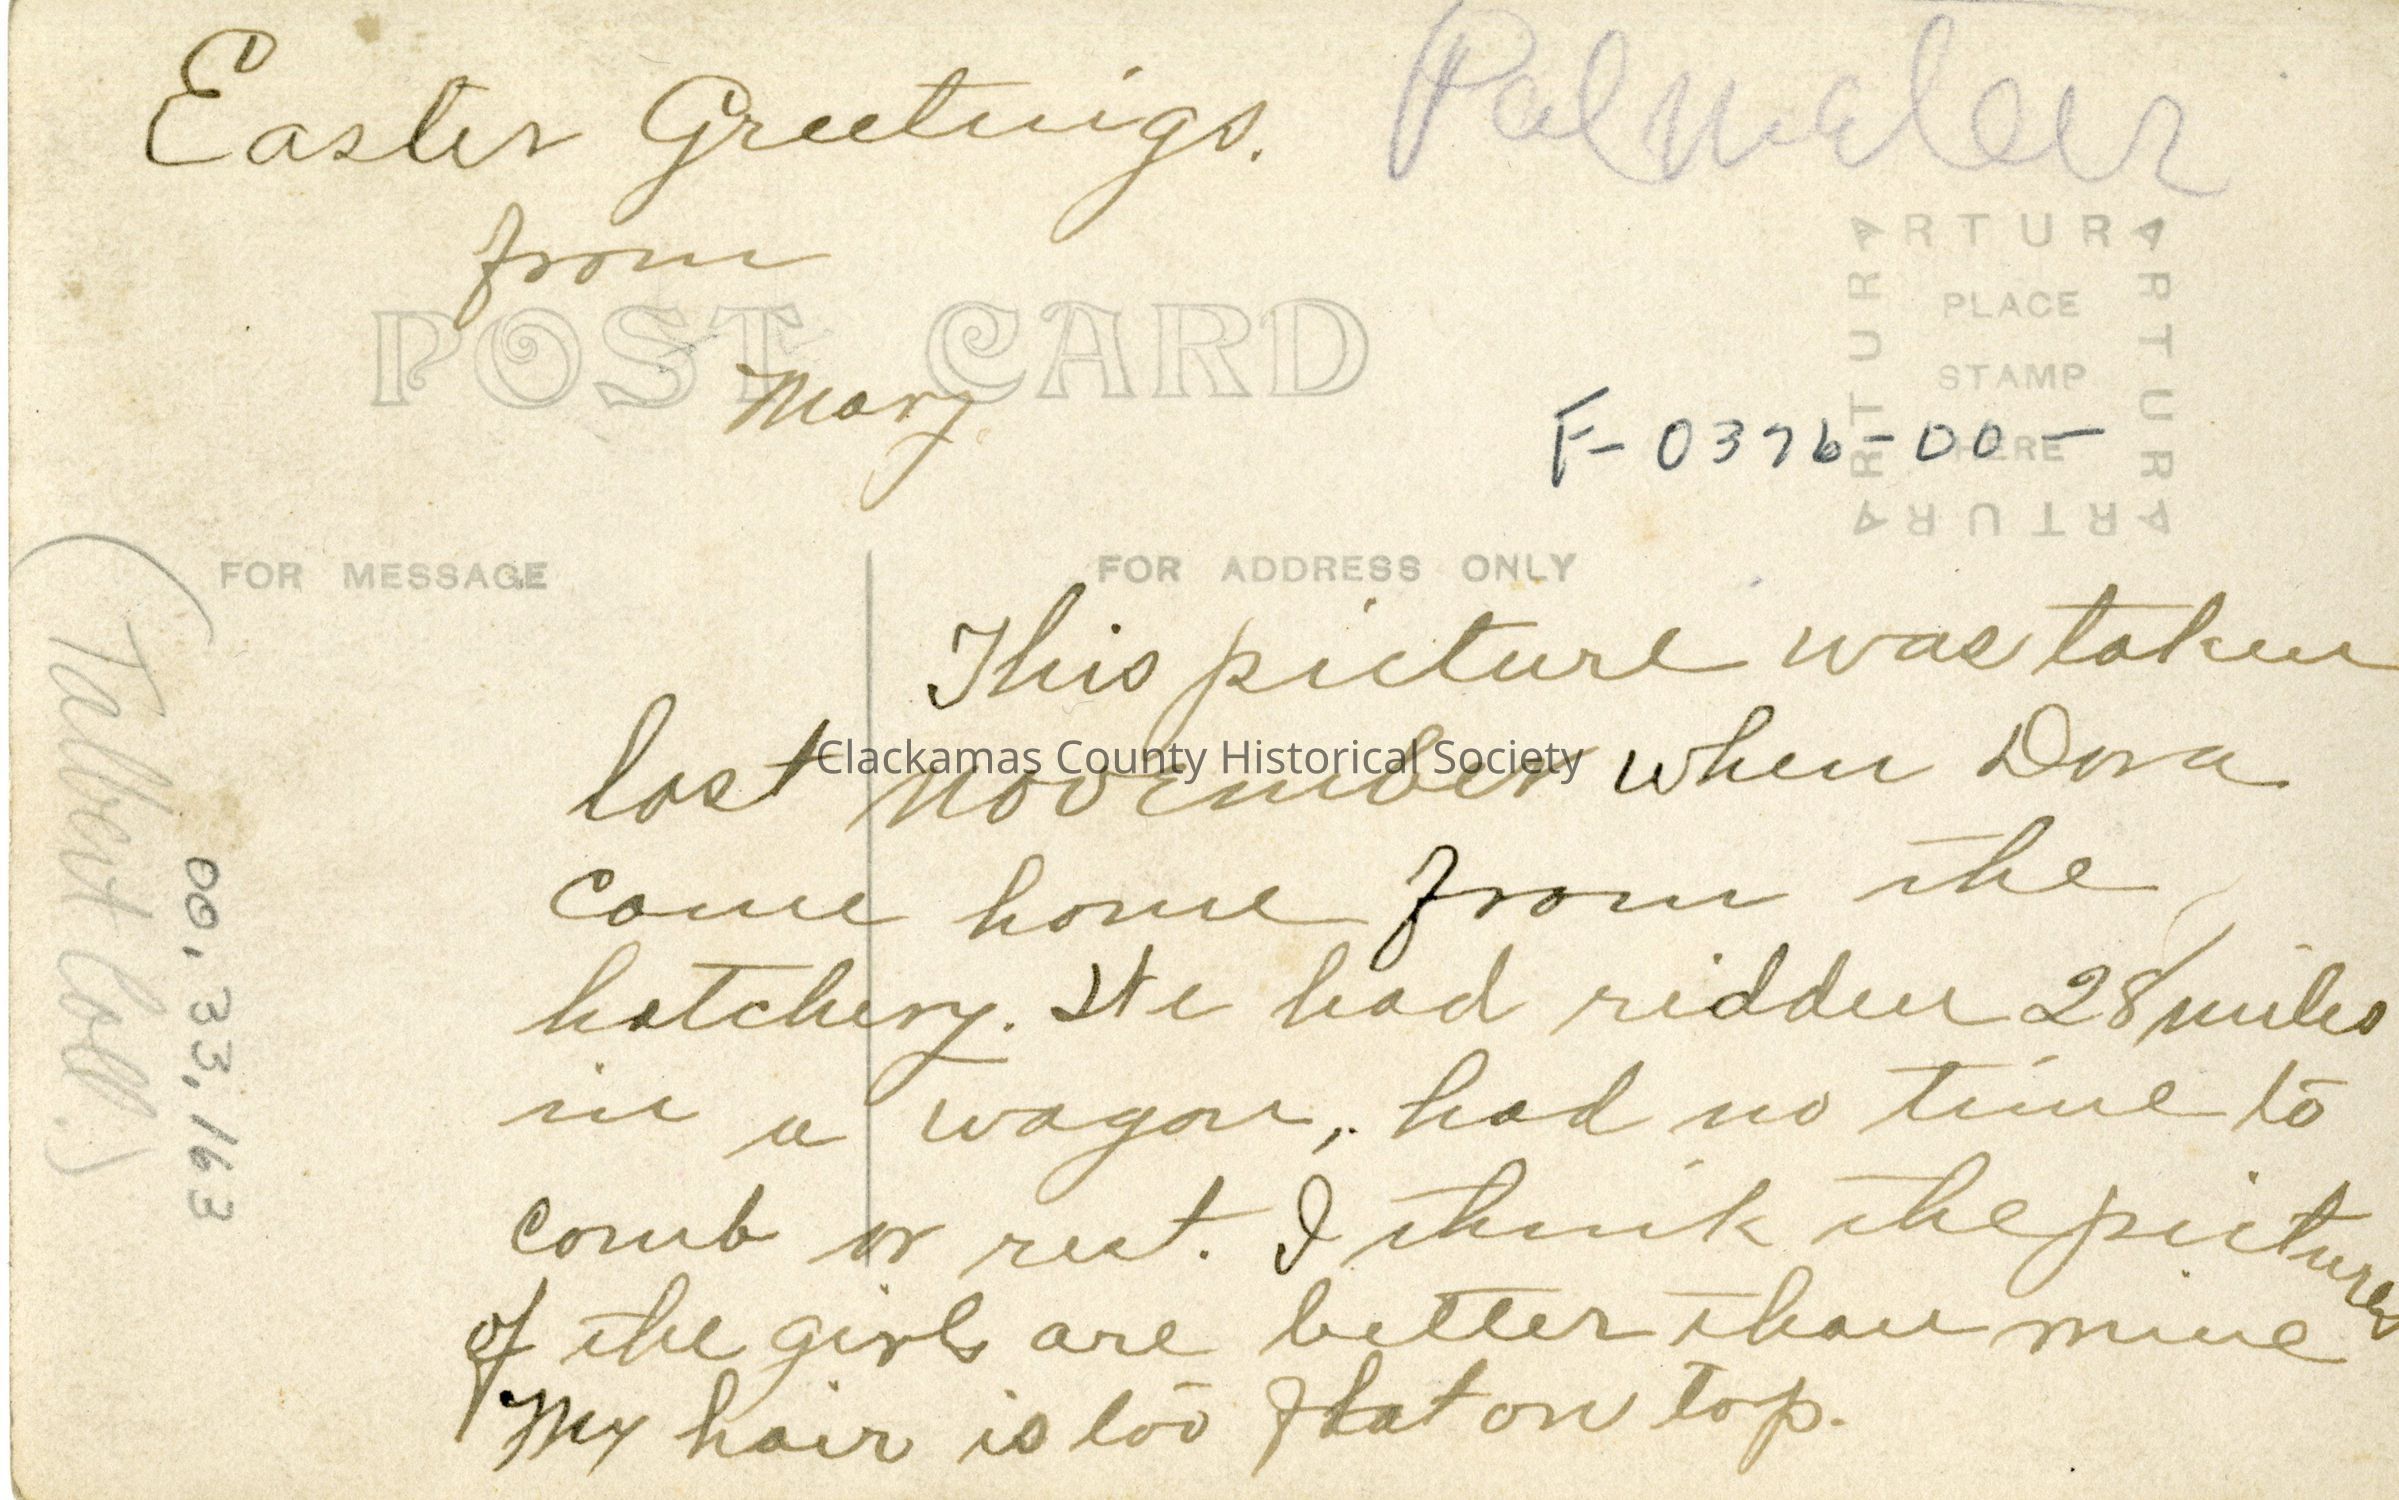 Easter Greetings.
from
Mary
Palmateer
POST CARD
ARTURA
ARTURA
ARTURA
ARTURA
PLACE
STAMP
HERE
F-0376-00-
FOR MESSAGE
FOR ADDRESS ONLY
This picture was taken
last November when Dora
Clackamas County Historical Society
came home from the
hatchery. He had ridden 28 miles
in a wagon, had no time to
comb or rest. I think the pictures
of the girls are better than mine
My hair is too flat on top.
(Talbert Coll.)
00.33.163